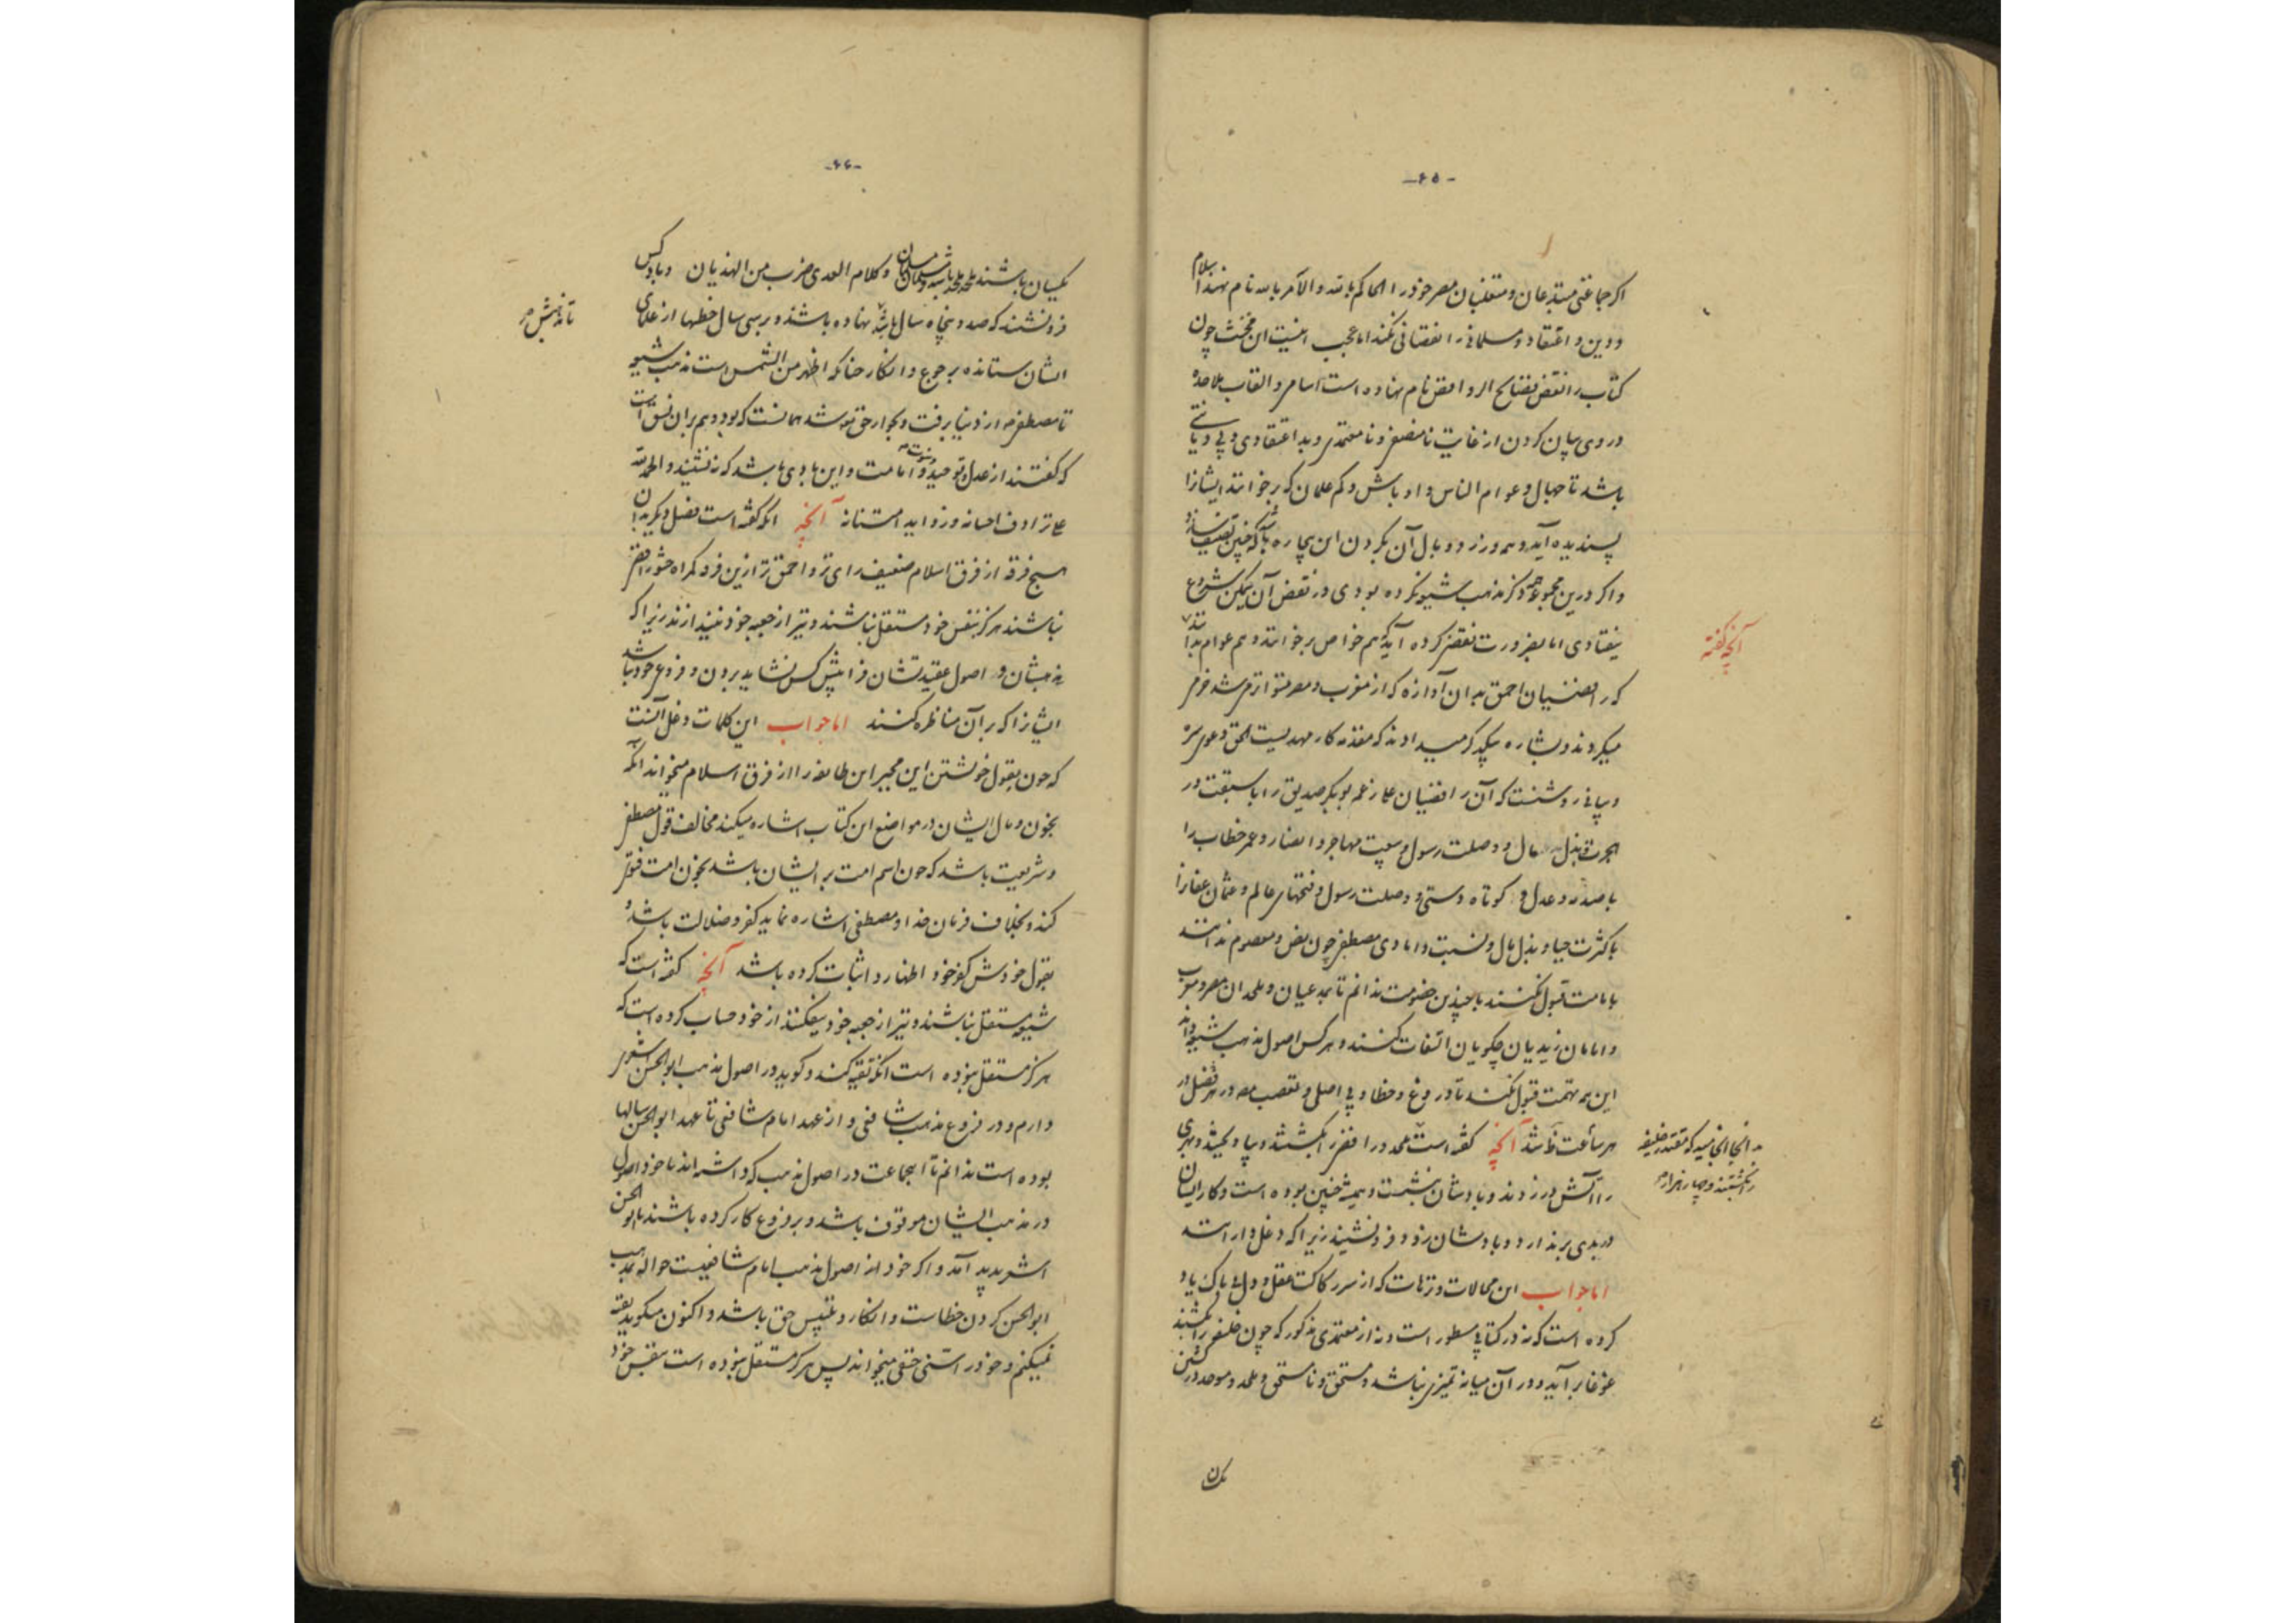 -۶۵-
اکر جماعتی مبتدعان و متغلبان مصر خود را الحاکم بالله و الآمر بالله نام نهند اسلام
و دین و اعتقاد و مسلمانی را نقصانی نکند اما عجب اینست این مخنث چون
کتاب را نقض فضایح الروافض نام نهاده است اسامی و القاب ملاحده
در وی بیان کردن از غایت نامنصفی و نامعتمدی و بد اعتقادی و بی دیانتی
باشد تا جهال و عوام الناس و اوباش و کم علمان که برخوانند ایشانرا
پسندیده آید و مزد و وبال آن بکردن این بیچاره باشد که چنین تصنیف سازد
و اکر درین مجموعه همه ذکر مذهب شیعه نکرده بودی در نقض آن لیکن شروع
نیفتادی اما بضرورت نقض کرده آید که هم خواص برخوانند و هم عوام بدانند
که رافضیان احمق بدان آوازه که از مغرب و مصر متواتر می شد خرمی
میکردند و بشاره بیکدیکر میدادند که مقدمه کار مهدیست الحق دعوی سره
و بیانی روشنست که آن رافضیان علی زعمه بوبکر صدیق را با سبقت در
هجرت و بذل مال و وصلت رسول و بیعت مهاجر و انصار و عمر خطاب را
با صدر و عدل و کوتاه دستی و وصلت رسول و فتحهای عالم و عثمان عفانرا
با کثرت حیا و بذل مال و نسبت و دامادی مصطفی چون نص و معصوم ندانند
بامامت قبول نکنند با چندین خصومت ندانم تا بمدعیان و ملحدان مصر و مغرب
و امامان زیدیان چکویان التفات کنند و هر کس اصول مذهب شیعه داند
این همه تهمت قبول نکند تا دروغ و خطا و بی اصلی و تعصب مصنف در هر فصل و در
هر ساعت ظاهر باشد آنچه کفته است ملحد و رافضی را بکشتند و بپاویختند و بهری
را آتش در زدند و بادشان بنشست و همیشه چنین بوده است و کار ایشان
در بدی برندارد و بادشان زود فرونشیند زیرا که دغل دارانند
اما جواب این محالات و ترهات که از سر رکاکت عقل و دل ناپاک یاد
کرده است که نه در کتابی مسطور است و نه از معتمدی مذکور که چون خلیفه را بکشند
غوغا برآید و در آن میانه تمیزی نباشد و مستحق و نامستحق و ملحد و موحد در کشتن
آنچه کفته
رانکشتند و چهار هزار
یکسان
-۶۶-
یکسان باشند ملحد باشد و مسلمان و کلام العدی ضرب من الهذیان و باد کس
فرونشند که صد و پنجاه سال باشد نهاده باشند و بر سی سال خطها از علمای
ایشان ستانده برجوع و انکار چنانکه اظهر من الشمس است مذهب شیعه
تا مصطفی از دنیا برفت و بجوار حق شد همانست که بود و هم بر آن نسق است
که کفتند از عدل و توحید و نبوت و امامت و این باوی باشد که ننشیند و الحمد لله
علی ترادف احسانه و زواید امتنانه آنچه آنکه کفته است فصل دیکر بدان
هیچ فرقه از فرق اسلام ضعیف رای تر و احمق تر ازین فرقه کمراه حشو رافضی
نباشند هرکز بنفس خود مستقل نباشند و تیر از جعبه خود نیندازند زیرا که
مذهبشان و اصول عقیدتشان فرا پیش کس نشاید بردن و فروع خود نباشد
ایشانرا که بر آن مناظره کنند اما جواب این کلمات دغل آنست
که چون بقول خویشتن این مجبر این طایفه را از فرق اسلام میخواند آنکه
بخون و مال ایشان در مواضع این کتاب اشاره میکند مخالف قول مصطفی
و شریعت باشد که چون اسم امت بر ایشان باشد بخون امت فتوی
کند و بخلاف فرمان خدا و مصطفی اشاره نماید کفر و ضلالت باشد و
بقول خودش کفر خود اظهار و اثبات کرده باشد آنچه کفته است که
شیعه مستقل نباشند و تیر از جعبه خود نیفکنند از خود حساب کرده است که
هرکز مستقل نبوده است آنکه تقیه کند و کوید در اصول مذهب ابوالحسن اشعری
دارم و در فروع مذهب شافعی و از عهد امام شافعی تا عهد ابوالحسن سالها
بوده است ندانم تا اینجماعت در اصول مذهب که داشته اند یا خود اصول
در مذهب ایشان موقوف باشد و بر فروع کار کرده باشند تا ابوالحسن
اشعری پدید آمد و اکر خود از اصول مذهب امام شافعیست حواله بمذهب
ابوالحسن کردن خطاست و انکار و تلبیس حق باشد و اکنون میکوید تقیه
نمیکنم و خود را سنی حنفی میخواند پس هرکز مستقل نبوده است بنفس خود